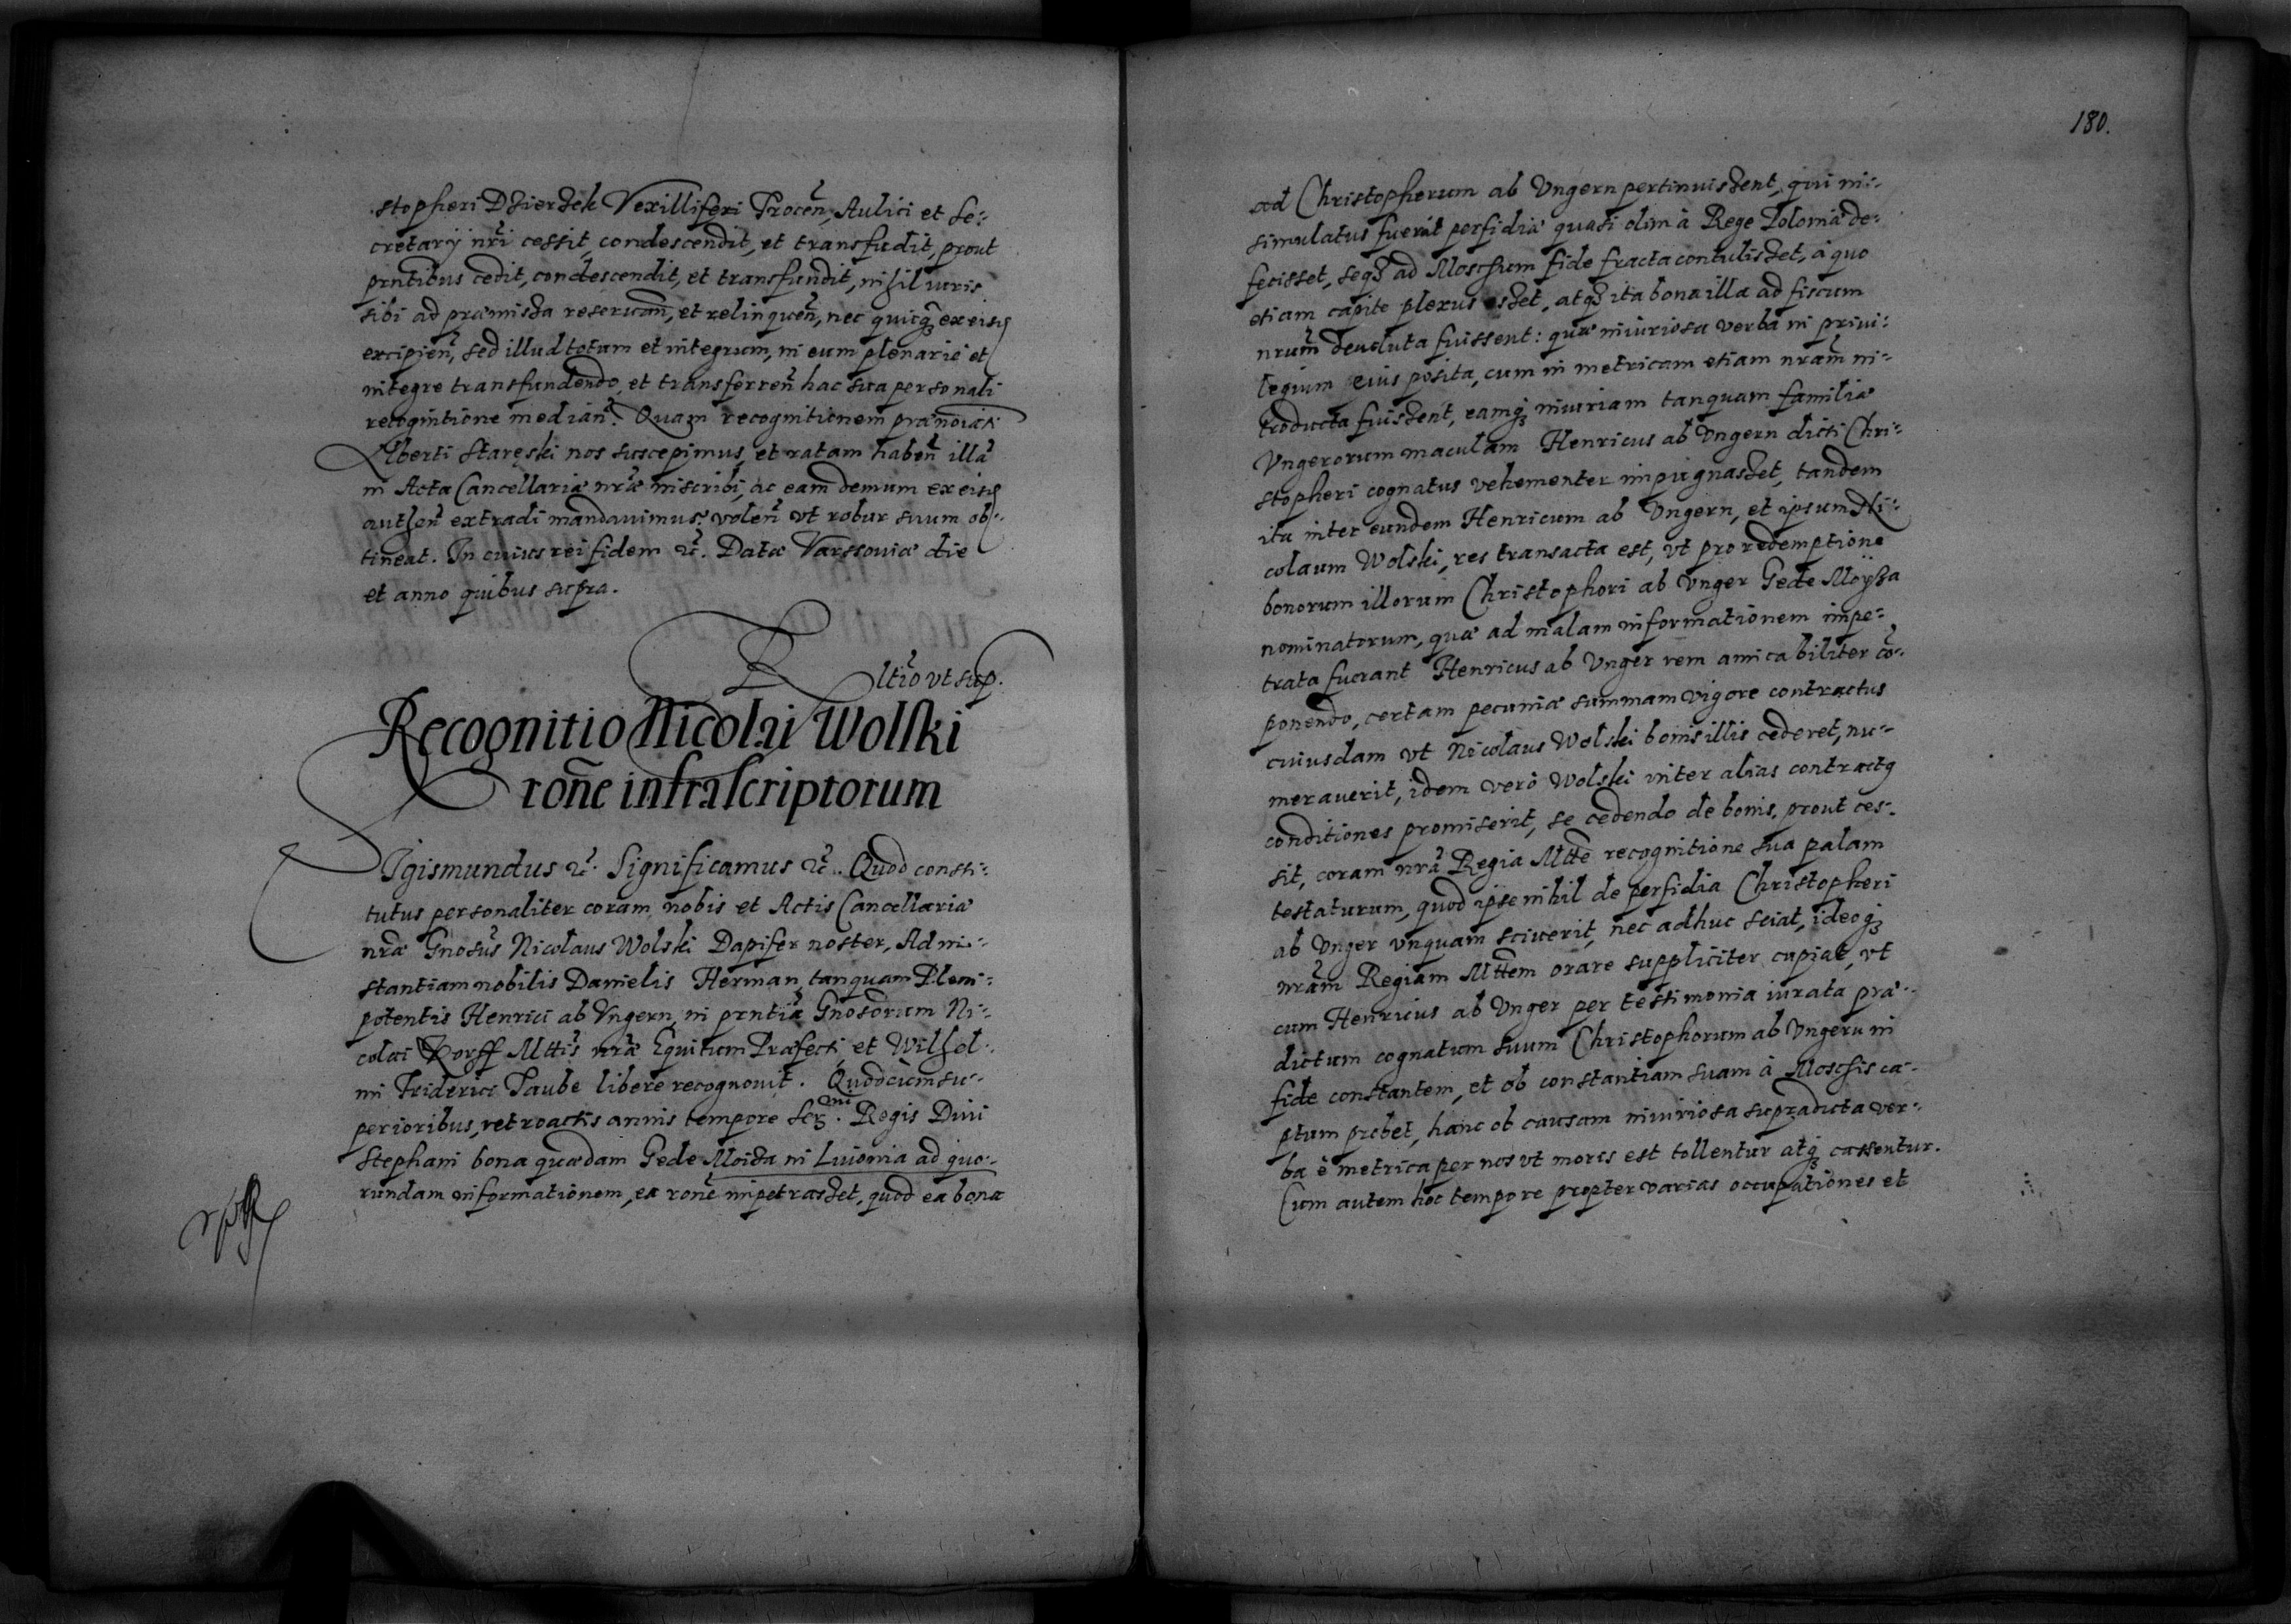 stopheri Dzierzek Vexilliferi Trocen̄, Aulici et Se-
cretarÿ nr̄i cessit, condescendit, et transfudit, prout
prntibus cedit, condescendit, et transfundit, nihil iuris
sibi ad præmissa reseruan̄, et relinquen̄, nec quicq̃ exeisđ
excipien̄, sed illud totum et integrum, in eum plenarie et
integre transfundendo, et transferren̄ hac sua personali
recognitione median̄. Quam recognitionem prænoïati
Alberti Staręski nos suscepimus, et ratam haben̄ illā
in Acta Cancellariæ nr̄æ inscribi, ac eam demum ex eisđ
authen̄ extradi mandauimus, volen̄ vt robur suum ob-
tineat. In cuius rei fidem &c. Datæ Varssouiæ die
et anno quibus supra.
Rltīo vt sup.
Recognitio Nicolai Wolski
rōne infrascriptorum
Sigismundus &c. Significamus &c. Quod consti-
tutus personaliter coram nobis et Actis Cancellariæ
nræ Gnosus Nicolaus Wolski Dapifer noster, Ad in-
stantiam nobilis Danielis Herman, tanquam Pleni-
potentis Henrici ab Vngern, in prntia Gnosorum Ni-
colai Korff Mttis nræ Equitum Præfecti, et Wilhel-
mi Friderici Taube libere recognouit. Quod cùm su-
perioribus, retroactis annis tempore Ser̄mi Regis Diui
Stephani bona quædam Gede Moisza in Liuonia ad quo-
rundam informationem, ea rōne impetrasset, quod ea bona
180.
ad Christopherum ab Vngern pertinuissent, qui in-
simulatus fuerit perfidiæ quasi olim à Rege Poloniæ de-
fecisset, seqꝫ ad Moschum fide fracta contulisset, à quo
etiam capite plexus esset, atqꝫ ita bona illa ad fiscum
nrum deuoluta fuissent: quæ iniuriosa verba in priui-
legium eius posita, cum in metricam etiam nram in-
troducta fuissent, eamqꝫ iniuriam tanquam familiæ
Vngerorum maculam Henricus ab Vngern dicti Chri-
stopheri cognatus vehementer impugnasset, tandem
ita inter eundem Henricum ab Vngern, et ipsum Ni-
colaum Wolski, res transacta est, vt pro redemptione
bonorum illorum Christophori ab Vnger Gede Moÿsza
nominatorum, quæ ad malam informationem impe-
trata fuerant Henricus ab Vnger rem amicabiliter cō-
ponendo, certam pecuniæ summam vigore contractus
cuiusdam vt Nicolaus Wolski bonis illis cederet, nu-
merauerit, idem verò Wolski inter alias contractꝯ
conditiones promiserit, se cedendo de bonis, prout ces-
sit, coram nra Regia Mtte recognitione sua palam
testaturum, quod ipse nihil de perfidia Christopheri
ab Vnger vnquam sciuerit, nec adhuc sciat, ideoqꝫ
nram Regiam Mttem orare suppliciter cupiat, vt
cum Henricus ab Vnger per testimonia iurata præ-
dictum cognatum suum Christophorum ab Vngern in
fide constantem, et ob constantiam suam à Moschis ca-
ptum probet, hanc ob causam iniuriosa supradicta ver-
ba è metrica per nos vt moris est tollentur atqꝫ cassentur.
Cum autem hoc tempore propter varias occupationes et